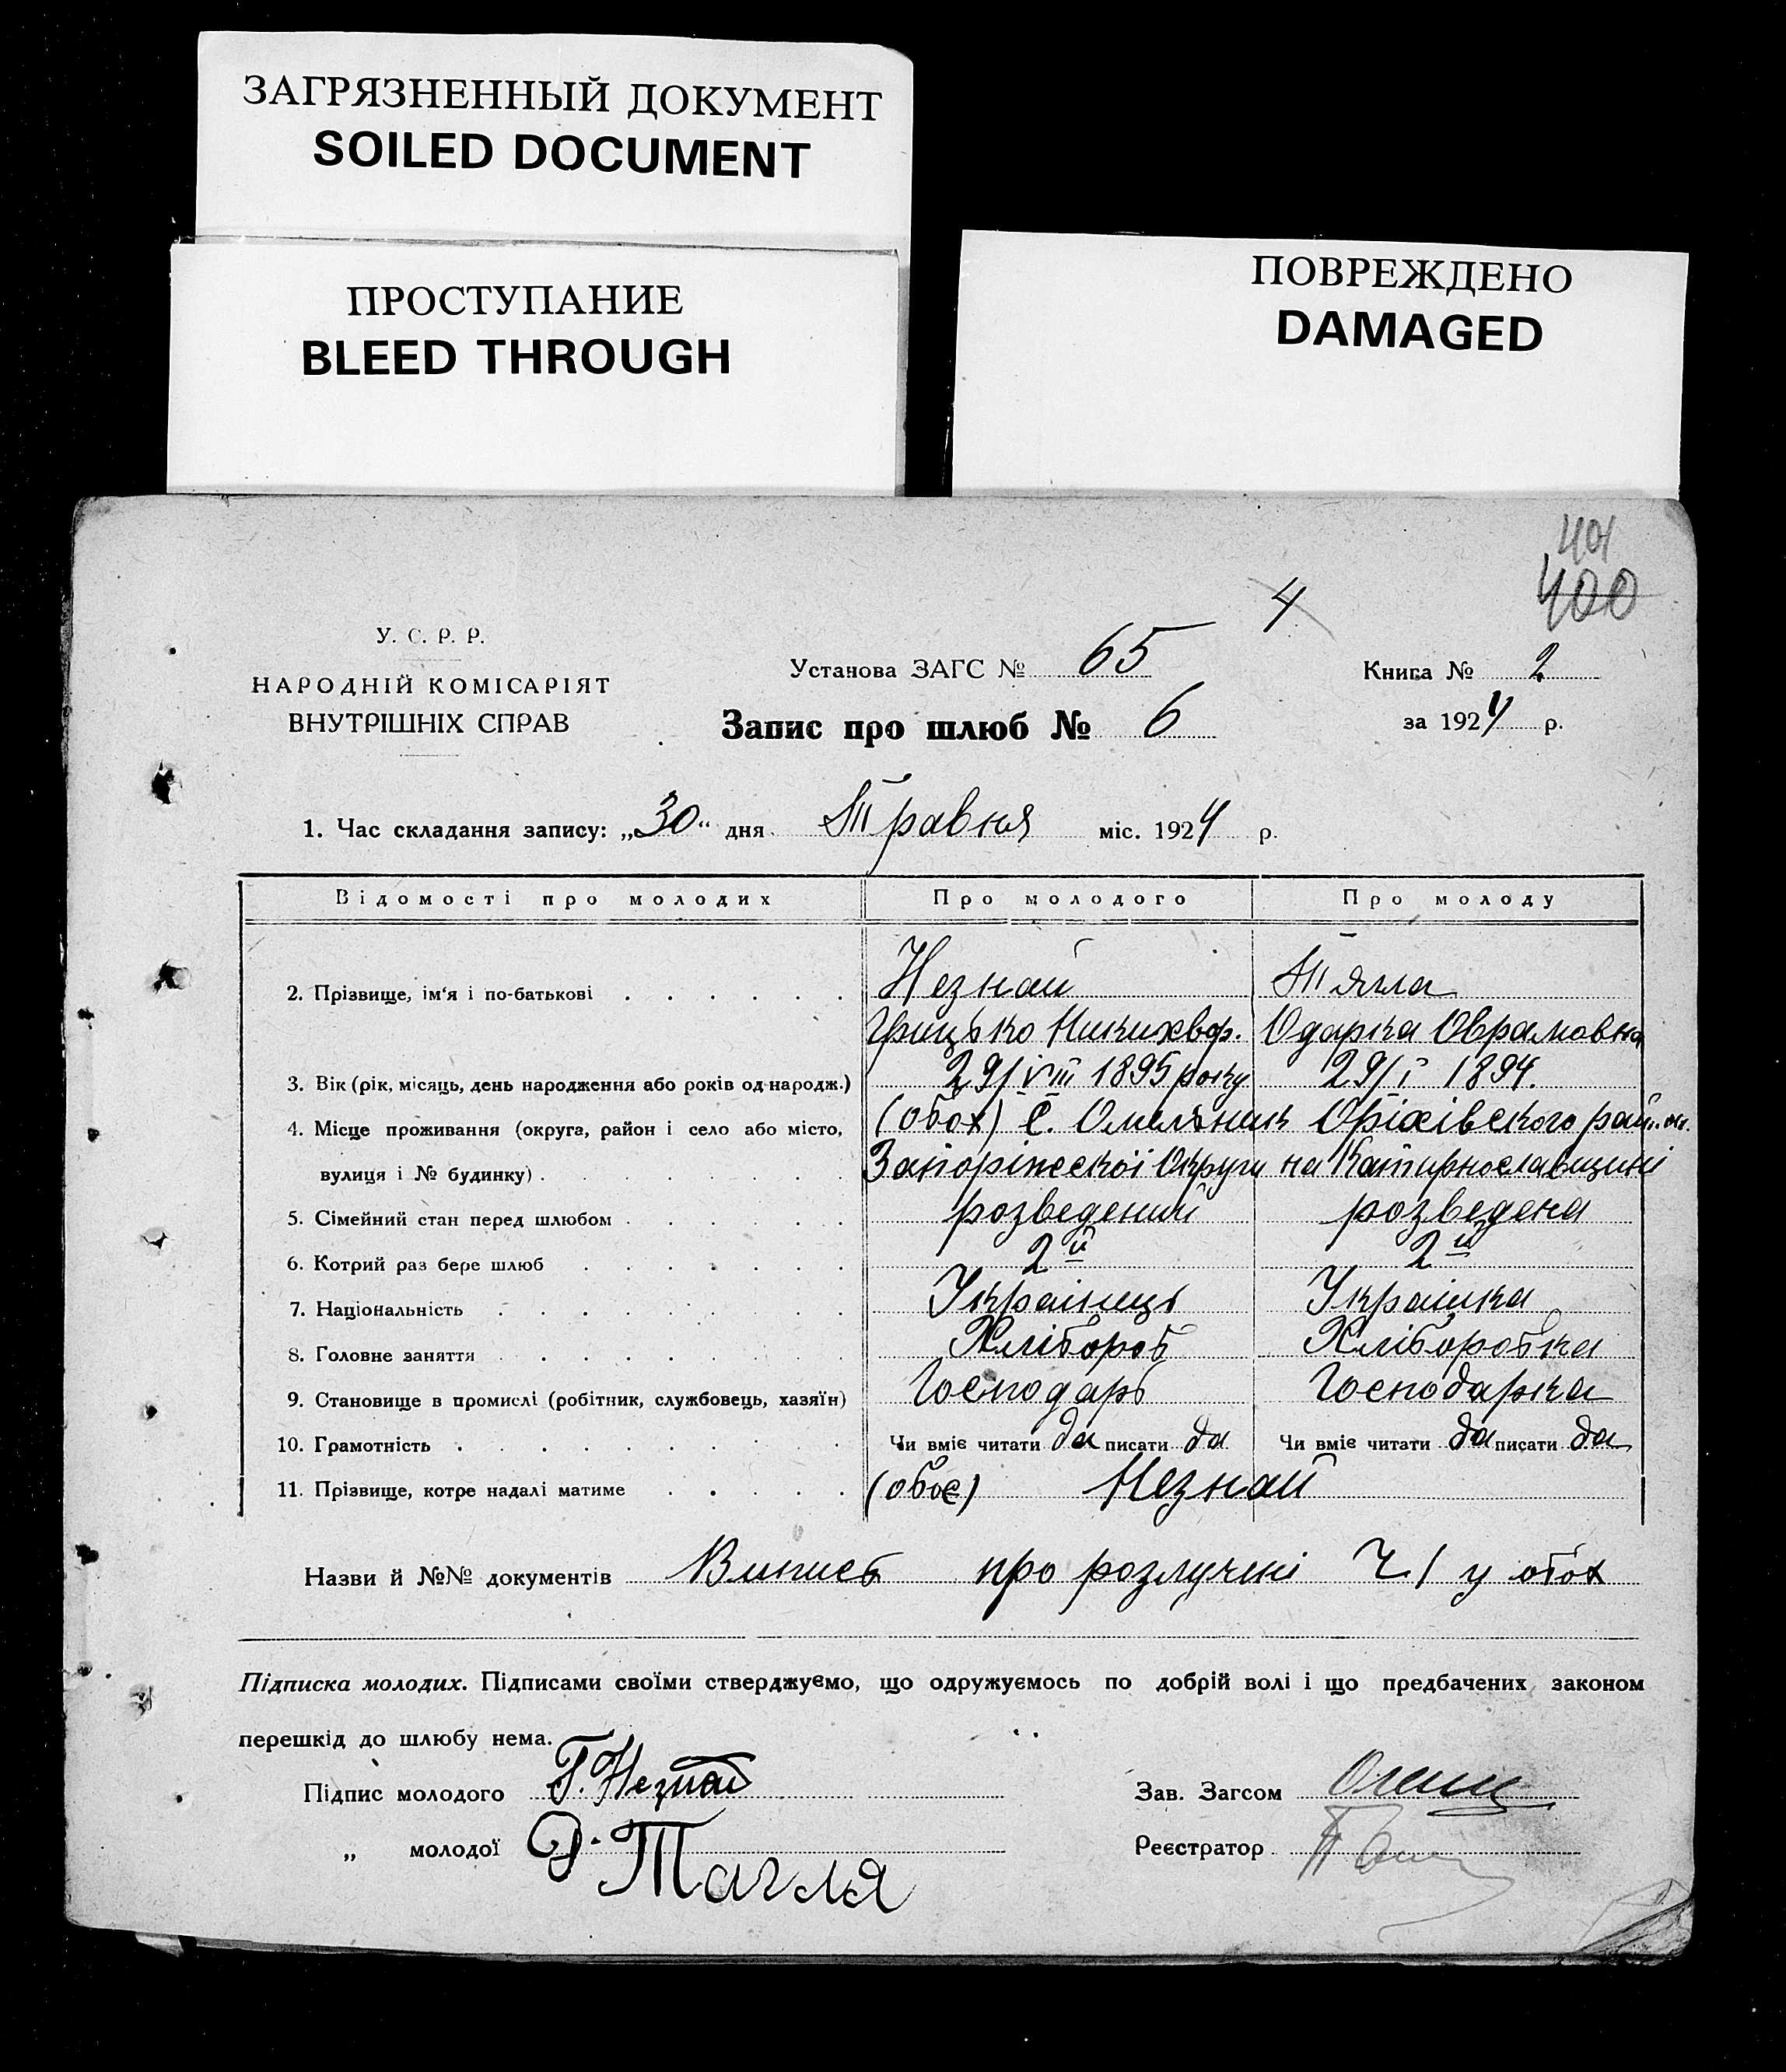 ЗАГРЯЗНЕННЫЙ ДОКУМЕНТ
SOILED DOCUMENT
ПРОСТУПАНИЕ
BLEED THROUGH
ПОВРЕЖДЕНО
DAMAGED
401
400
4
У. С. Р. Р.
НАРОДНІЙ КОМІСАРІЯТ
ВНУТРІШНІХ СПРАВ
Установа ЗАГС № 65
Запис про шлюб № 6
Книга № 2
за 1924 р.
1. Час складання запису: „30" дня Травня міс. 1924 р.
Відомості про молодих Про молодого Про молоду
2. Прізвище, ім'я і по-батькові Незнай Тягла
Грицько Никихвор. Одарка Оврамовна
3. Вік (рік, місяць, день народження або років од народж.) 29/VIII 1895 року 29/I 1894.
4. Місце проживання (округа, район і село або місто, (обох) с. Омельник Оріхівского рай.
вулиця і № будинку) Запоріжської Округи на Катирнославщині
5. Сімейний стан перед шлюбом розведений розведена
6. Котрий раз бере шлюб 2й 2й
7. Національність Українець Українка
8. Головне заняття Хлібороб Хлібороbка
9. Становище в промислі (робітник, службовець, хазяїн) Господарь Господарка
10. Грамотність Чи вміє читати да писати да Чи вміє читати да писати да
11. Прізвище, котре надалі матиме (обоє) Незнай
Назви й №№ документів Випись про розлучені Ч 1 у обох
Підписка молодих. Підписами своїми стверджуємо, що одружуємось по добрій волі і що предбачених законом
перешкід до шлюбу нема.
Підпис молодого Г. Незнай
„ молодої О. Тагля
Зав. Загсом
Реєстратор